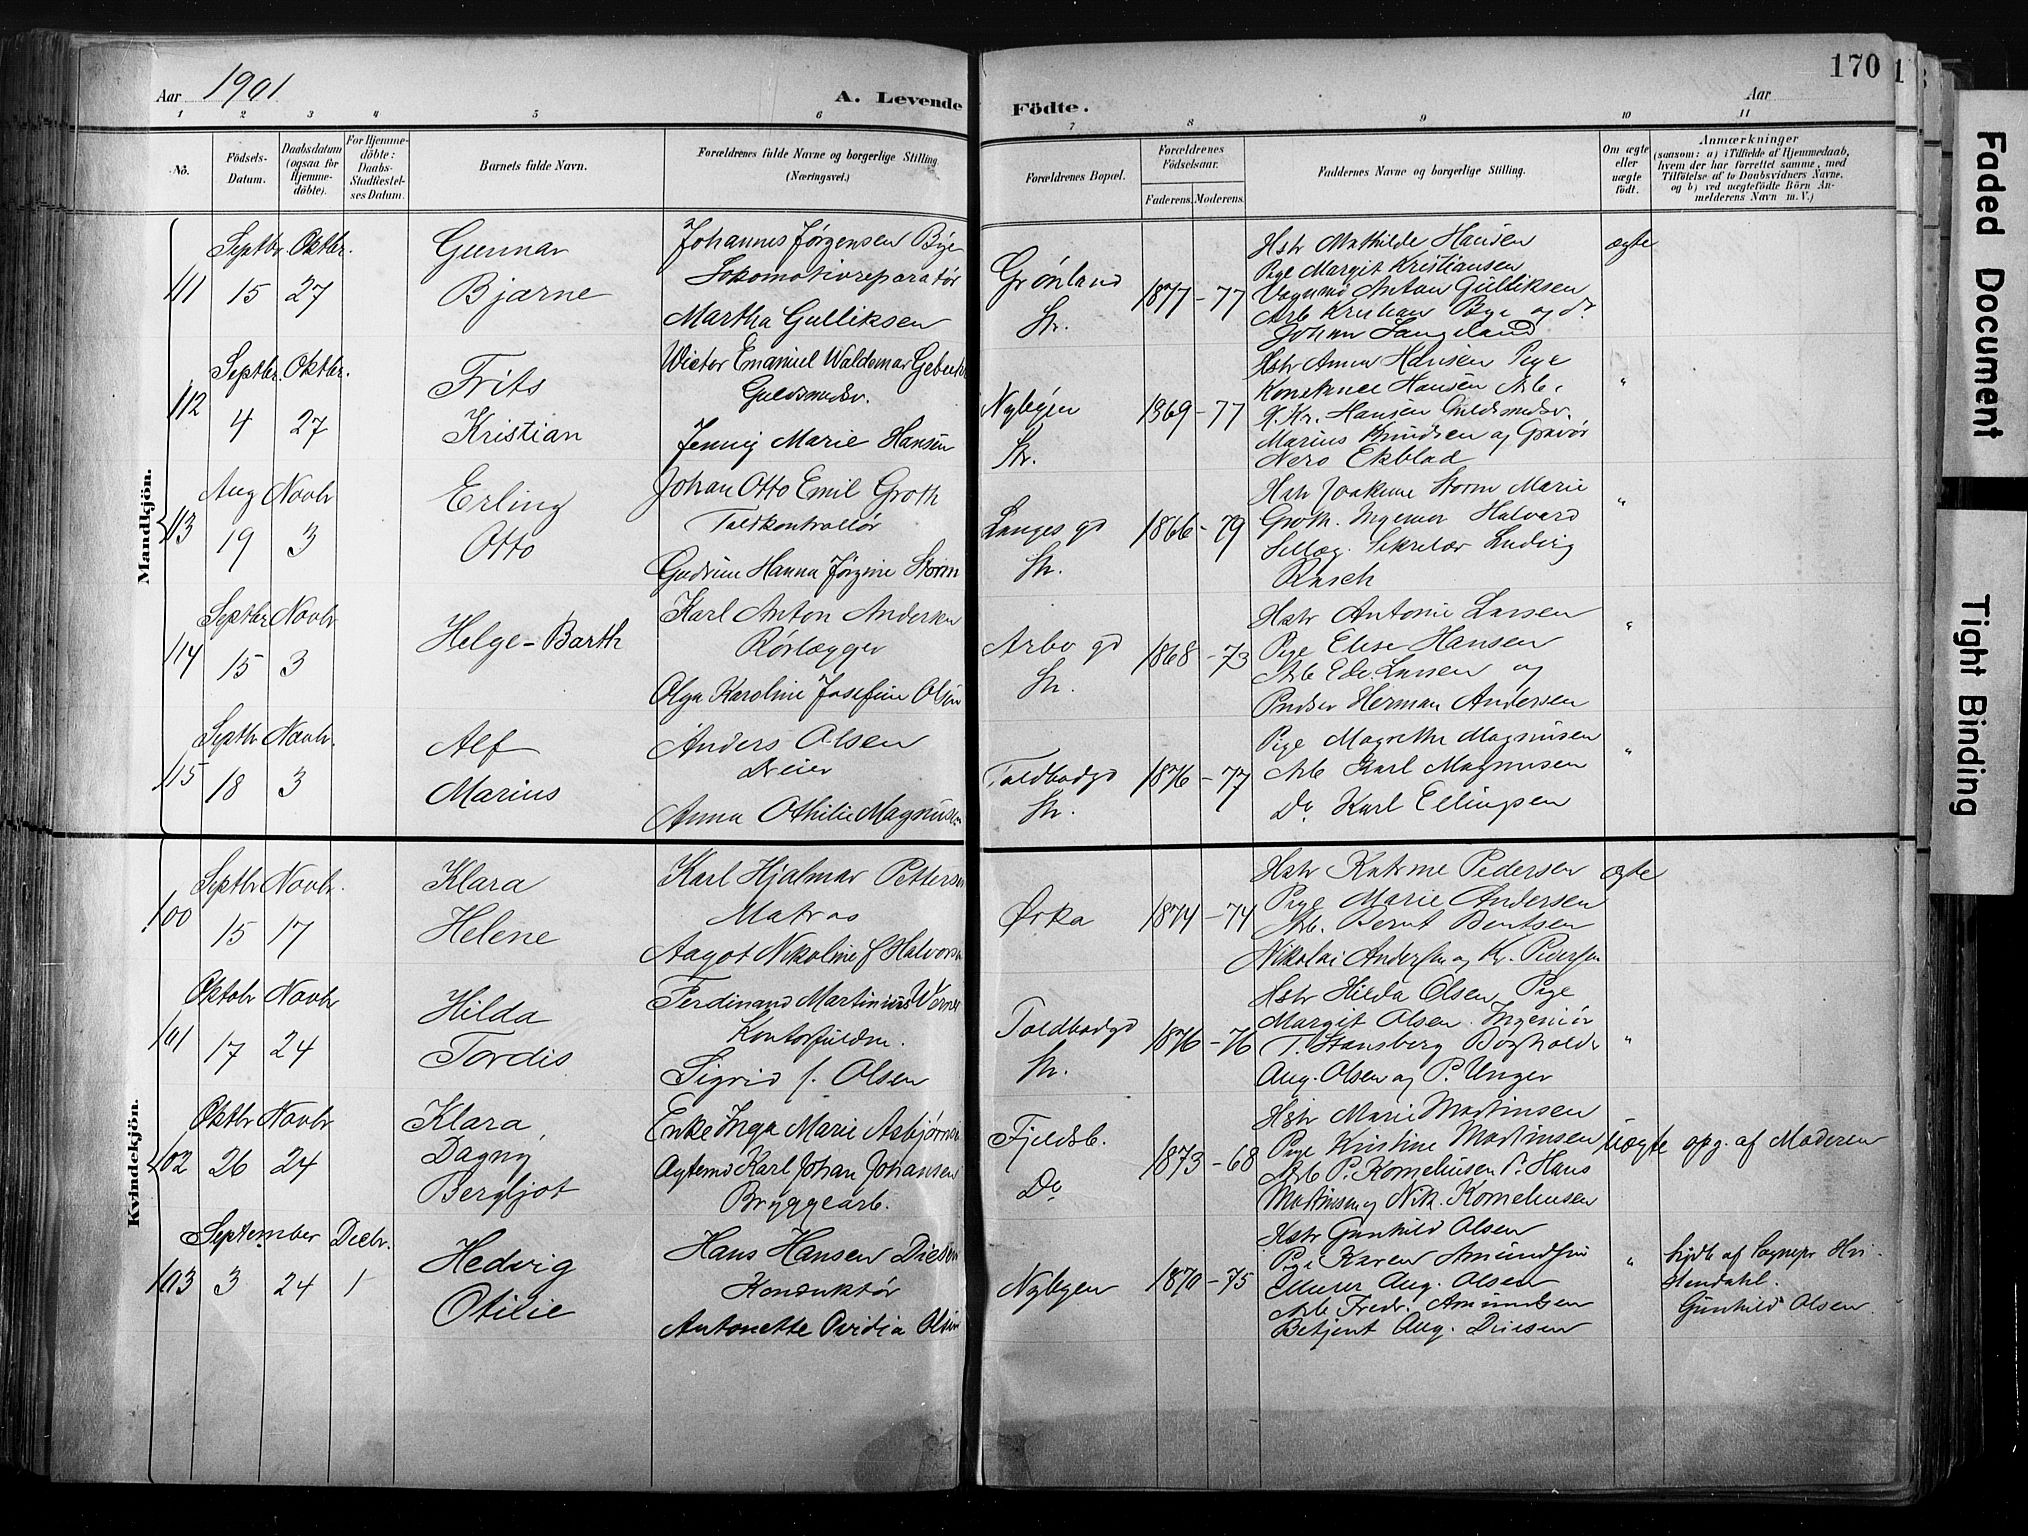 170
Aar 1901
A. Levende Födte.
Aar
1 2 3 4 5 6 7 8 9 10 11
No.
Födsels-Datum.
Daabsdatum (ogsaa for Hjemmedöbte).
For Hjemmedöbte: Daabs-Stadfæstelses Datum.
Barnets fulde Navn.
Forældrenes fulde Navne og borgerlige Stilling (Næringsvei.)
Forældrenes Bopæl.
Forældrenes Födselsaar.
Faderens. Moderens.
Faddernes Navne og borgerlige Stilling.
Om ægte eller uægte födt.
Anmærkninger
(saasom: a) i Tilfælde af Hjemmedaab, hvem der har forrettet samme, med Tilföielse af to Daabsvidners Navne, og b) ved uægtefödte Börn Anmelderens Navn m. V.)
Mandkjön.
111
Septbr. Oktbr.
15 27
Gunnar
Bjarne
Johannes Jørgensen Bye
Lokomotivreparatør
Martha Gulliksen
Grönland
Str.
1877 - 77
Hstr Mathilde Hansen
Pige Margit Kristiansen
Anton Gulliksen
Arb Kristian Bye og do
Johan Langeland
ægte
112
Septbr. Oktbr.
4 27
Frits
Kristian
Victor Emanuel Waldemar
Guldsmedsv.
Jenny Marie Hansen
Nybyen
Str.
1869 - 77
Hstr Anna Hansen Pige
Konstance Hansen Arb.
K. Kr. Hansen Guldsmedsv.
Marius Knudsen og Gravør
Nero Ekblad
"
113
Aug Novbr
19 3
Erling
Otto
Johan Otto Emil Groth
Toldkontrollør
Gudrun Hanna Jørgine Storm
Langes gd
Str.
1866 - 79
Hstr Joakime Storm Marie
Groth. Ingeniør Halvard
Sekretær Ludvig
Rasch
"
114
Septbr Novbr
15 3
Helge-Barth
Karl Anton Andersen
Rørlægger
Olga Karoline Josefine Olsen
Arbo gd
Str.
1868 - 73
Hstr Antonie Larsen
Pige Elise Hansen
Arb Edv. Larsen og
Pudser Herman Andersen
"
115
Septbr Novbr.
18 3
Alf
Marius
Anders Olsen
Dreier
Anna Othilie Magnusen
Toldbodgd
Str.
1876 - 77
Pige Magrethe Magnusen
Arb Karl Magnusen
Do Karl Ellingsen
"
Kvindekjön.
100
Septbr Novbr.
15 17
Klara
Helene
Karl Hjalmar Pettersen
Matros
Aagot Nikoline f Halvorsen
Ørka
1874 - 74
Hstr Katrine Pedersen
Pige Marie Andersen
Arb. Bernt Bentsen
Nikolai Andersen og Kr. Pedersen
ægte
101
Oktobr Novbr
17 24
Hilda
Tordis
Ferdinand Martinius Werner
Kontorfuldm.
Sigrid f. Olsen
Toldbodgd
Str.
1876 - 76
Hstr Hilda Olsen Pige
Margit Olsen. Ingeniør
T. Stansberg Bogholder
Aug. Olsen og P. Unger
"
102
Oktbr Novbr
26 24
Klara
Dagny
Bergljot
Enke Inga Marie Asbjørnsen
Ugtemd Karl Johan Johansen
Bryggearb.
Fjeldsb.
Do
1873 - 68
Hstr Marie Martinsen
Pige Kristine Martinsen
Arb P. Korneliusen P. Hans
Martinsen og Nik. Korneliusen
Uægte
opg. af Moderen
103
September Decbr.
3 24 1
Hedvig
Otilie
Hans Hansen Diesen
Konduktør
Antonette Ovidia Olsen
Nybyen
1870 - 75
Hstr Gunhild Olsen
Pige Karen Amundsen
Murer Aug. Olsen
Arb Fredr. Amundsen
Betjent Aug. Diesen
"
hjdb af Sognepr Hvi-
stendahl.
Gunhild Olsen
Faded Document
Tight Binding